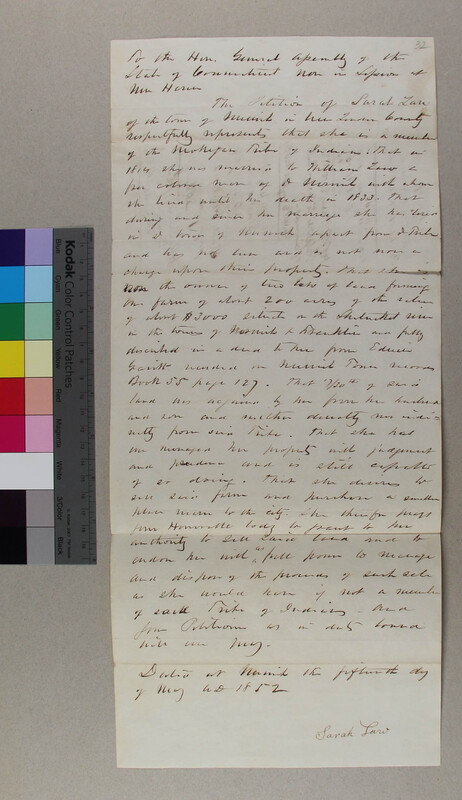 32
To the Hon. General Assembly of the
State of Connecticut now in Session &
The Petition of Sarah Law
of the town of Norwich in New London County
respectfully represents that she is a member
of the Mohegan Tribe of Indians; that in
1814 she was married to William Law a
free colored man of Norwich with whom
she lived until his death in 1833. That
during and since her marriage she has lived
in town of Norwich apart from Tribe
and has not been and is not now a
charge upon their property. That she
the owner of two lots of land forming
one farm of about 200 acres of the value
of about $3000 situate on the Shetucket river
in the towns of Norwich & Franklin and fully
described in a deed to her from Edwin
recorded on Norwich Town records
Book 55 page 127. That of said
land was acquired by her from her husband
and son and neither directly nor indi-
rectly from said Tribe. That she has
managed her property with judgment
and prudence and is still capable
of so doing. That she desires to
sell said farm and purchase a smaller
place near to the city. She therefore prays
your Honorable body to grant to her
authority to sell said land and to
endow her with full power to manage
and dispose of the proceeds of such sale
as she would have if not a member
of said Tribe of Indians. And
your Petitioner as in duty bound
will ever pray.
Dated at Norwich the fifteenth day
of May AD 1852
Sarah Law
Kodak Color Control Patches
Blue
Cyan
Green
Yellow
Red
Magenta
White
3/Color
Black